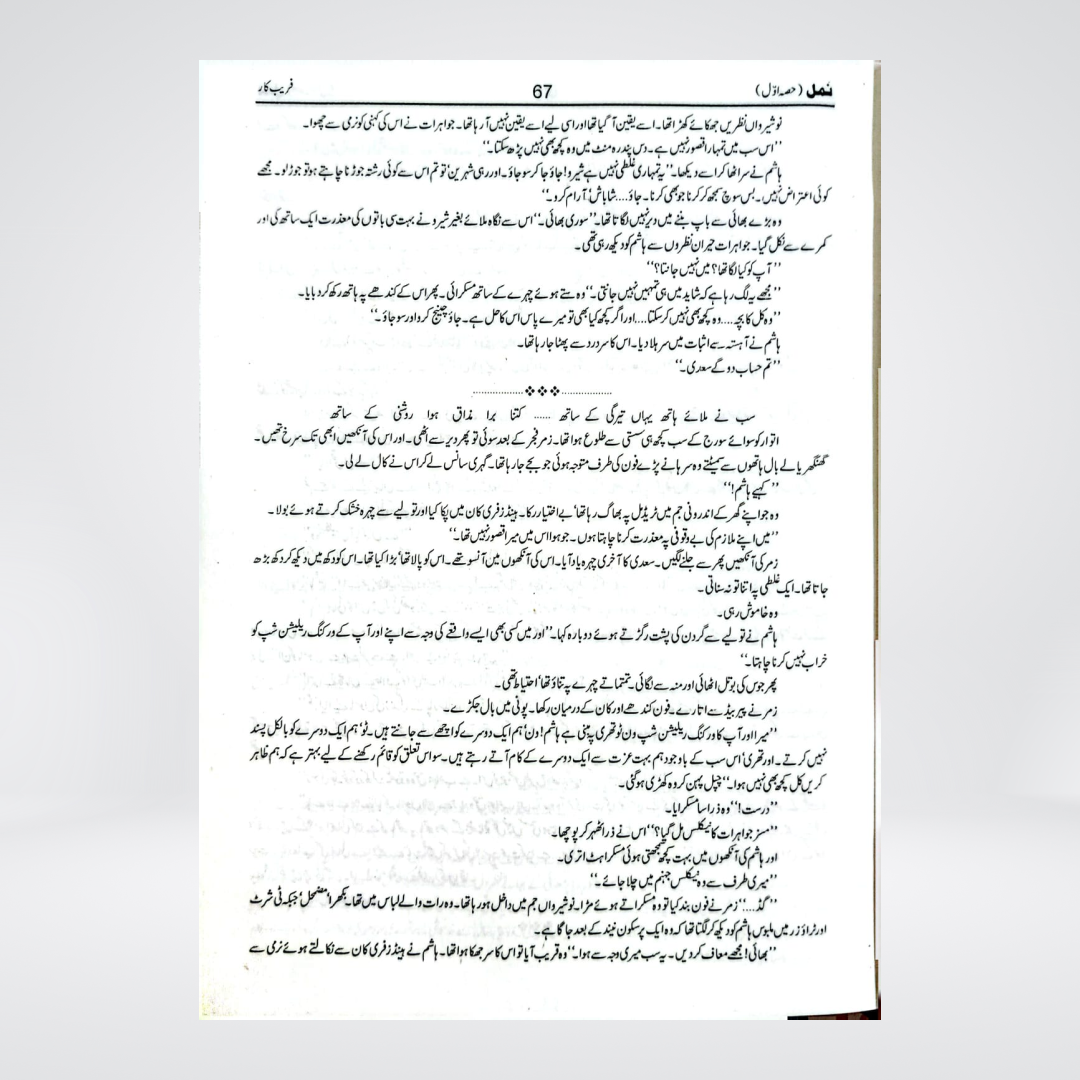 نمل (حصہ اوّل) 67 فریب کار
نوشیرواں نظریں جھکائے کھڑا تھا۔ اسے یقین آ گیا تھا اور اسی لیے اسے یقین نہیں آ رہا تھا۔ جواہرات نے اس کی کہنی کو نرمی سے چھوا۔
’’اس سب میں تمہارا قصور نہیں ہے۔ دس پندرہ منٹ میں وہ کچھ بھی نہیں پڑھ سکتا۔‘‘
ہاشم نے سر اٹھا کر اسے دیکھا۔ ’’یہ تمہاری غلطی نہیں ہے شیرو! جاؤ جا کر سو جاؤ۔ اور رہی شہرین‘ تو تم اس سے کوئی رشتہ جوڑنا چاہتے ہو تو جوڑ لو۔ مجھے
کوئی اعتراض نہیں۔ بس سوچ سمجھ کر کرنا جو بھی کرنا۔ جاؤ.... شاباش‘ آرام کرو۔‘‘
وہ بڑے بھائی سے باپ بننے میں دیر نہیں لگاتا تھا۔ ’’سوری بھائی۔‘‘ اس سے نگاہ ملائے بغیر شیرو نے بہت سی باتوں کی معذرت ایک ساتھ کی اور
کمرے سے نکل گیا۔ جواہرات حیران نظروں سے ہاشم کو دیکھ رہی تھی۔
’’آپ کو کیا لگا تھا؟ میں نہیں جانتا؟‘‘
’’مجھے یہ لگ رہا ہے کہ شاید میں ہی تمہیں نہیں جانتی۔‘‘ وہ ستے ہوئے چہرے کے ساتھ مسکرائی۔ پھر اس کے کندھے پہ ہاتھ رکھ کر دبایا۔
’’وہ کل کا بچہ.... وہ کچھ بھی نہیں کر سکتا.... اور اگر کچھ کیا بھی تو میرے پاس اس کا حل ہے۔ جاؤ چینج کرو اور سو جاؤ۔‘‘
ہاشم نے آہستہ سے اثبات میں سر ہلا دیا۔ اس کا سر درد سے پھٹا جا رہا تھا۔
’’تم حساب دو گے سعدی۔‘‘
سب نے ملائے ہاتھ یہاں تیرگی کے ساتھ ...... کتنا بڑا مذاق ہوا روشنی کے ساتھ
اتوار کو سوائے سورج کے سب کچھ ہی سستی سے طلوع ہوا تھا۔ زمر فجر کے بعد سوئی تو پھر دیر سے اٹھی۔ اور اس کی آنکھیں ابھی تک سرخ تھیں۔
گھنگھریالے بال ہاتھوں سے سمیٹتے وہ سرہانے پڑے فون کی طرف متوجہ ہوئی جو بجے جا رہا تھا۔ گہری سانس لے کر اس نے کال لے لی۔
’’کہیے ہاشم!‘‘
وہ جو اپنے گھر کے اندرونی جم میں ٹریڈمل پہ بھاگ رہا تھا‘ بے اختیار رکا۔ ہینڈز فری کان میں پکا کیا اور تولیے سے چہرہ خشک کرتے ہوئے بولا۔
’’میں اپنے ملازم کی بے وقوفی پہ معذرت کرنا چاہتا ہوں۔ جو ہوا اس میں میرا قصور نہیں تھا۔‘‘
زمر کی آنکھیں پھر سے جلنے لگیں۔ سعدی کا آخری چہرہ یاد آیا۔ اس کی آنکھوں میں آنسو تھے۔ اس کو پالا تھا‘ بڑا کیا تھا۔ اس کو دکھ میں دیکھ کر دکھ بڑھ
جاتا تھا۔ ایک غلطی پہ اتنا تو نہ سناتی۔
وہ خاموش رہی۔
ہاشم نے تولیے سے گردن کی پشت رگڑتے ہوئے دوبارہ کہا۔ ’’اور میں کسی بھی ایسے واقعے کی وجہ سے اپنے اور آپ کے ورکنگ ریلیشن شپ کو
خراب نہیں کرنا چاہتا۔‘‘
پھر جوس کی بوتل اٹھائی اور منہ سے لگائی۔ تمتماتے چہرے پہ تناؤ تھا‘ احتیاط تھی۔
زمر نے پیر بیڈ سے اتارے۔ فون کندھے اور کان کے درمیان رکھا۔ پونی میں بال جکڑے۔
’’میرا اور آپ کا ورکنگ ریلیشن شپ ون ٹو تھری پہ مبنی ہے ہاشم! ون‘ ہم ایک دوسرے کو اچھے سے جانتے ہیں۔ ٹو‘ ہم ایک دوسرے کو بالکل پسند
نہیں کرتے۔ اور تھری‘ اس سب کے باوجود ہم بہت عزت سے ایک دوسرے کے کام آتے رہتے ہیں۔ سو اس تعلق کو قائم رکھنے کے لیے بہتر ہے کہ ہم ظاہر
کریں کل کچھ بھی نہیں ہوا۔‘‘ چپل پہن کر وہ کھڑی ہو گئی۔
’’درست!‘‘ وہ ذرا سا مسکرایا۔
’’مسز جواہرات کا نیکلس مل گیا؟‘‘ اس نے ذرا ٹھہر کر پوچھا۔
اور ہاشم کی آنکھوں میں بہت کچھ سمجھتی ہوئی مسکراہٹ اتری۔
’’میری طرف سے وہ نیکلس جہنم میں چلا جائے۔‘‘
’’گڈ....‘‘ زمر نے فون بند کیا تو وہ مسکراتے ہوئے مڑا۔ نوشیرواں جم میں داخل ہو رہا تھا۔ وہ رات والے لباس میں تھا۔ بکھرا‘ مضمحل‘ جبکہ ٹی شرٹ
اور ٹراؤزر میں ملبوس ہاشم کو دیکھ کر لگتا تھا کہ وہ ایک پرسکون نیند کے بعد جاگا ہے۔
’’بھائی! مجھے معاف کر دیں۔ یہ سب میری وجہ سے ہوا۔‘‘ وہ قریب آیا تو اس کا سر جھکا ہوا تھا۔ ہاشم نے ہینڈز فری کان سے نکالتے ہوئے نرمی سے